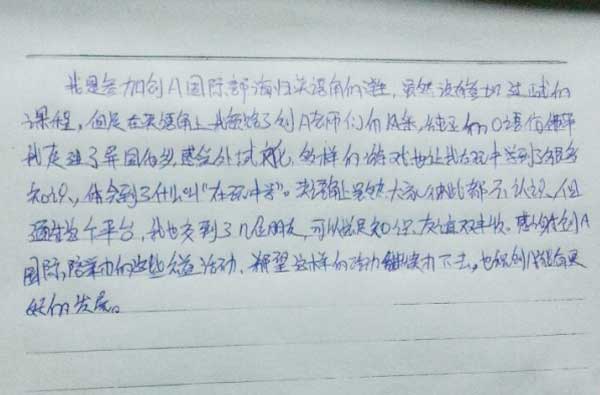 我是参加创A国际部海归英语角的学生,虽然没参加过正式的
课程,但是在英语角上我领略了创A老师们的风采,纯正的口语使得
我足足了异国的乡,感受外域文化,多样的游戏也让我在玩中学到了很多
知识,体会到了什么叫“在玩中学”。英语角上虽然大家彼此都不认识,但
通过这个平台,我也交到了几位朋友,可以说是知识、友谊双丰收。感谢创A
国际部举办的这些公益活动,希望这样的活动能继续办下去,也祝创A能有更
好的发展。